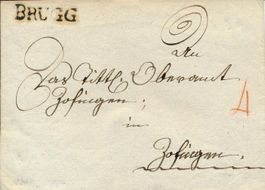 BRUGG
An
Das Tittl. Oberamt
Zofingen;
in
Zofingen.
4